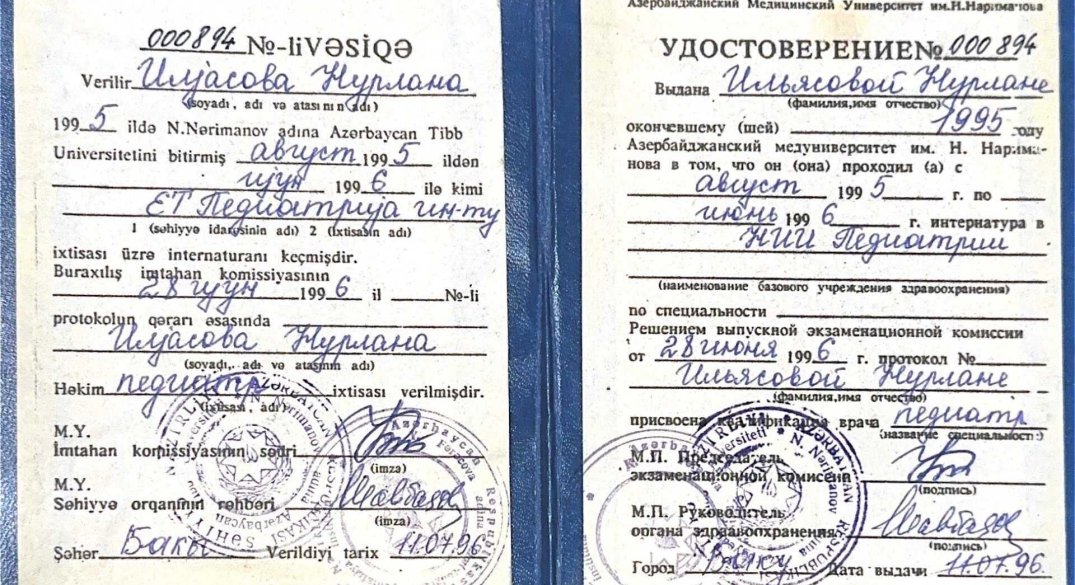 000894 №-li VƏSİQƏ
Verilir Илјасова Нурлана
(soyadı, adı və atasının adı)
1995 ildə N.Nərimanov adına Azərbaycan Tibb
Universitetini bitirmiş август 1995 ildən
ијун 1996 ilə kimi
ЕТ Педиатрија ин-ту
1 (səhiyyə idarəsinin adı) 2 (ixtisasın adı)
ixtisası üzrə internaturanı keçmişdir.
Buraxılış imtahan komissiyasının
28 ијун 1996 il №-li
protokolun qərarı əsasında
Илјасова Нурлана
(soyadı, adı və atasının adı)
Həkim педиатр ixtisası verilmişdir.
(ixtisası, adı)
M.Y.
İmtahan komissiyasının sədri
(imza)
M.Y.
Səhiyyə orqanının rəhbəri
(imza)
Şəhər Бакы Verildiyi tarix 11.07.96
Азербайджанский Медицинский Университет им.Н.Нариманова
УДОСТОВЕРЕНИЕ № 000894
Выдана Ильясовой Нурлане
(фамилия,имя отчество)
окончевшему (шей) 1995 году
Азербайджанский медуниверситет им. Н. Нарима-
нова в том, что он (она) проходил (а) с
август 1995 г. по
июнь 1996 г. интернатура в
НИИ Педиатрии
(наименование базового учреждения здравоохранения)
по специальности
Решением выпускной экзаменационной комиссии
от 28 июня 1996 г. протокол №
Ильясовой Нурлане
(фамилия,имя отчество)
присвоена квалификация врача педиатр
(название специальности)
М.П. Председатель
экзаменационной комиссии
(подпись)
М.П. Руководитель
органа здравоохранения
(подпись)
Город Баку Дата выдачи 11.07.96